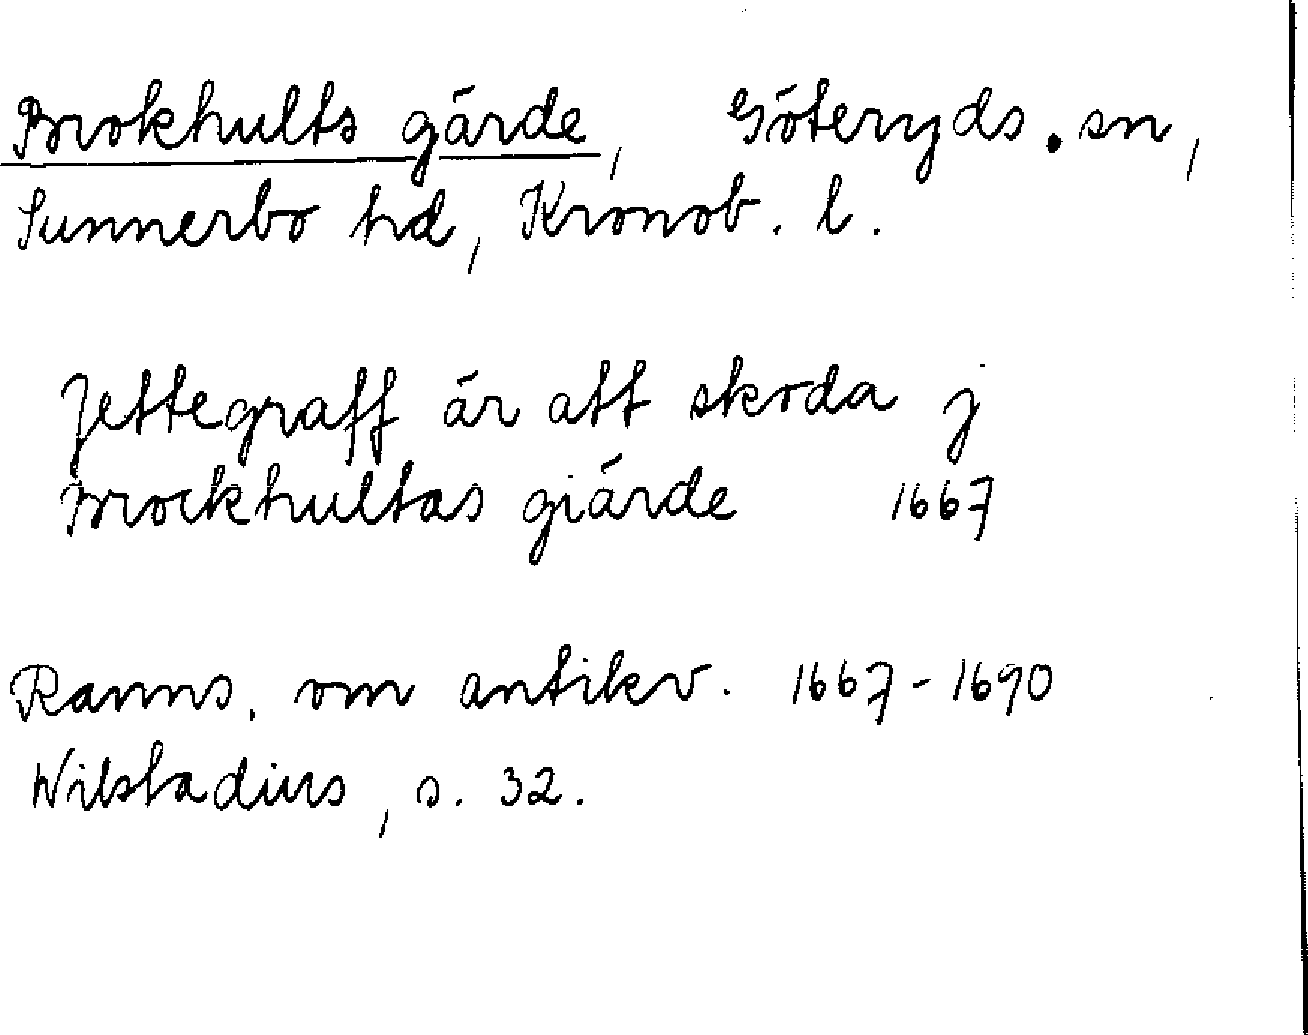 Brokhults gärde, Göteryds. sn,
Sunnerbo hd, Kronob. l.
Jettegraff är att skoda j
Brockhultas giärde 1667
Ranns. om antikv. 1667-1690
Wilstadius, s. 32.